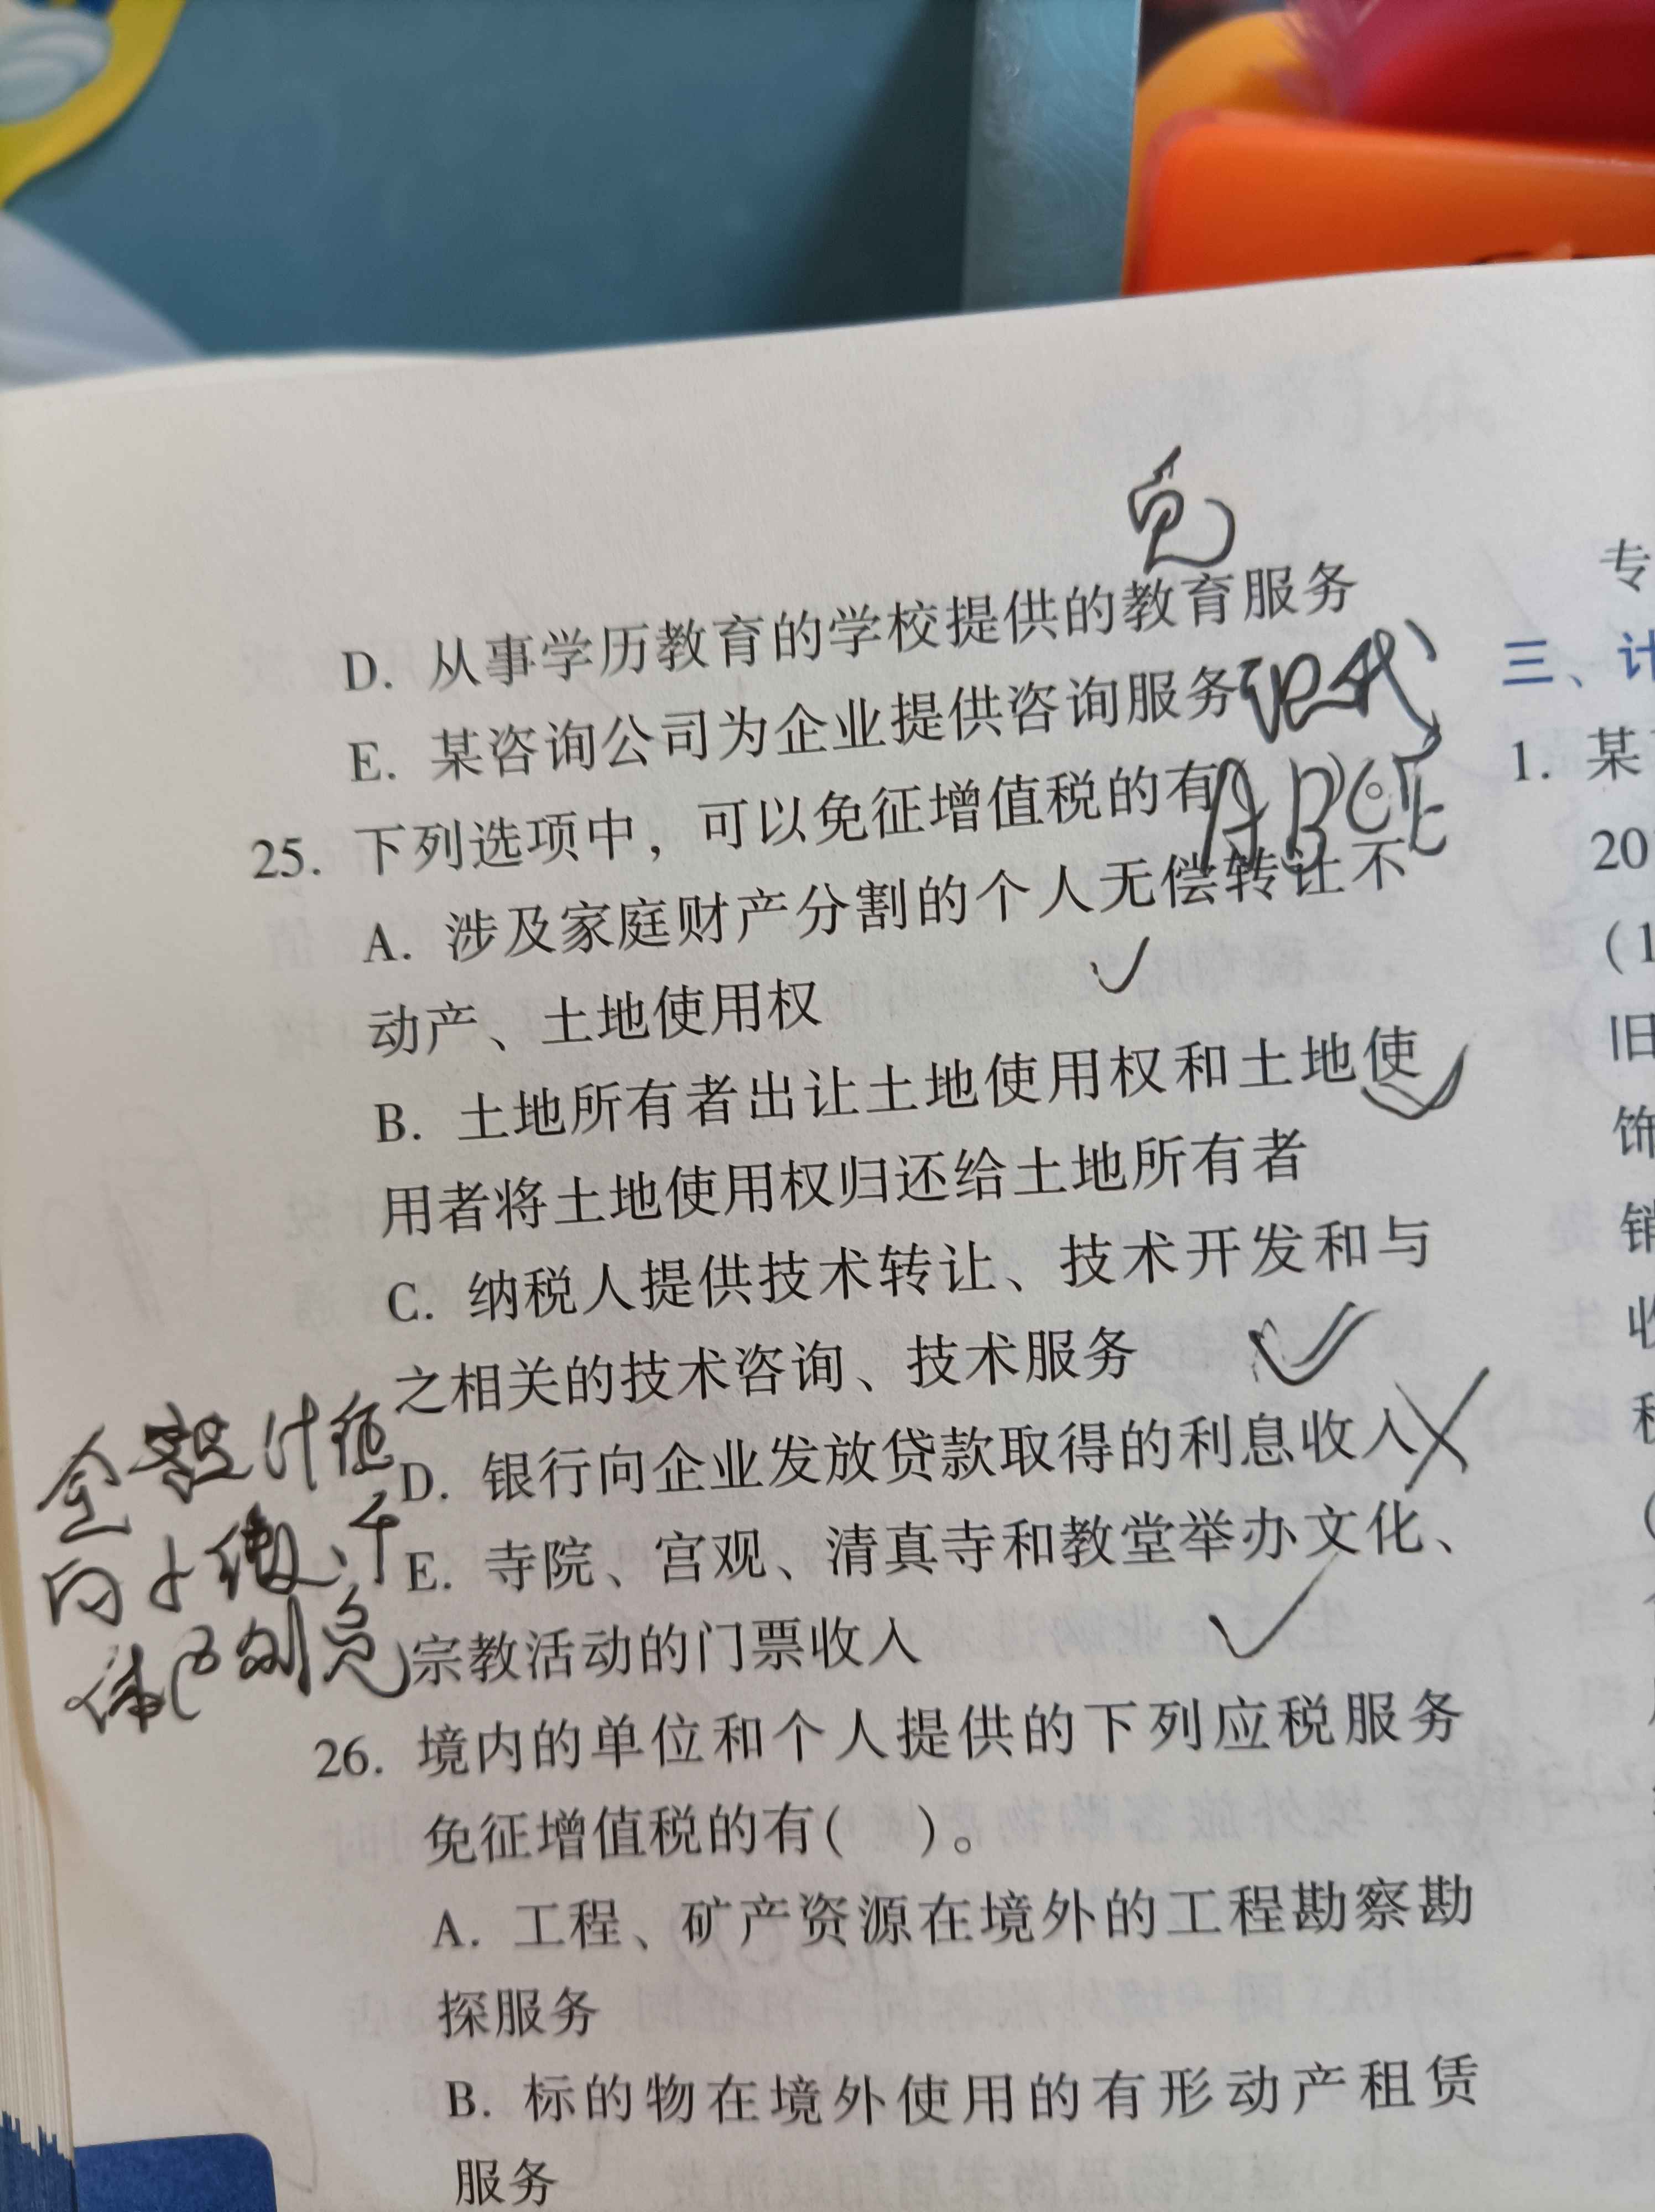 免
D. 从事学历教育的学校提供的教育服务
E. 某咨询公司为企业提供咨询服务
25. 下列选项中，可以免征增值税的有 ABCE
A. 涉及家庭财产分割的个人无偿转让不
动产、土地使用权
B. 土地所有者出让土地使用权和土地使
用者将土地使用权归还给土地所有者
C. 纳税人提供技术转让、技术开发和与
之相关的技术咨询、技术服务
D. 银行向企业发放贷款取得的利息收入
E. 寺院、宫观、清真寺和教堂举办文化、
宗教活动的门票收入
全额计征
向小微、个
体
26. 境内的单位和个人提供的下列应税服务
免征增值税的有( )。
A. 工程、矿产资源在境外的工程勘察勘
探服务
B. 标的物在境外使用的有形动产租赁
服务
专
三、计
1. 某
20
(1
旧
饰
销
收